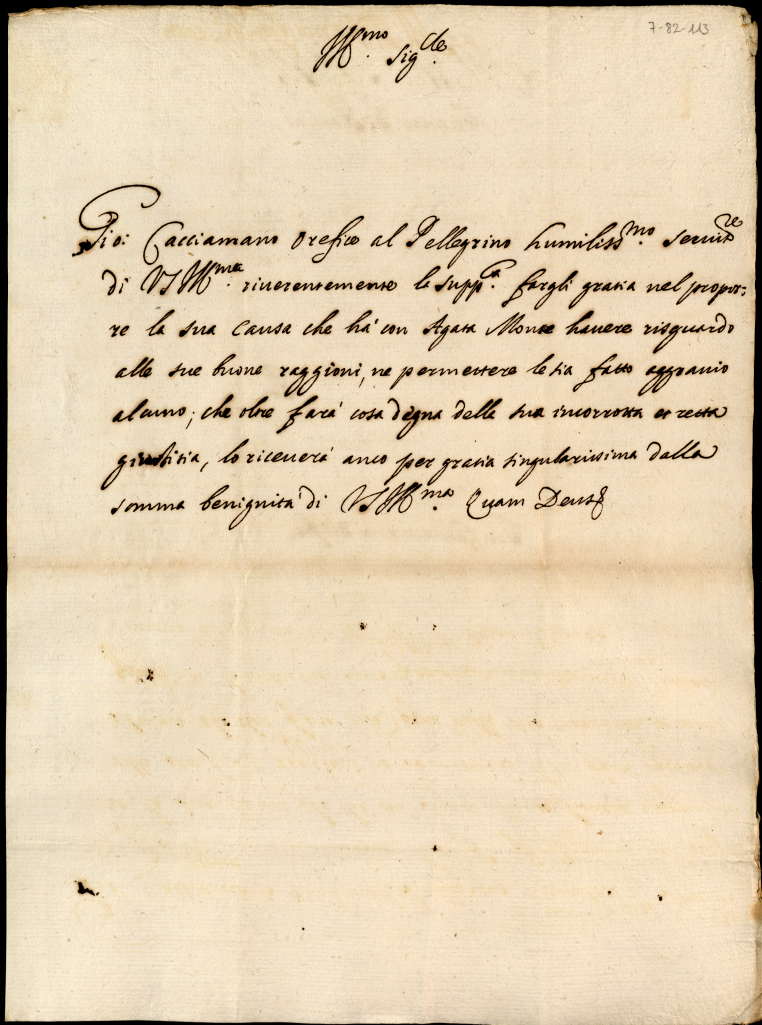 7-82-113
Ill.mo Sig.re
Gio: Cacciamano Orefice al Pellegrino humiliss.mo servit.re
di VS Ill.ma riverentemente la supp.ca fargli gratia nel propor:
re la sua causa che hà con Agata Monte havere risguardo
alle sue buone raggioni, ne permettere le sia fatto aggravio
alcuno; che oltre farà cosa degna della sua incorrotta et retta
giustitia, lo riceverà anco per gratia singularissima dalla
somma benignità di VS Ill.ma Quam Deus